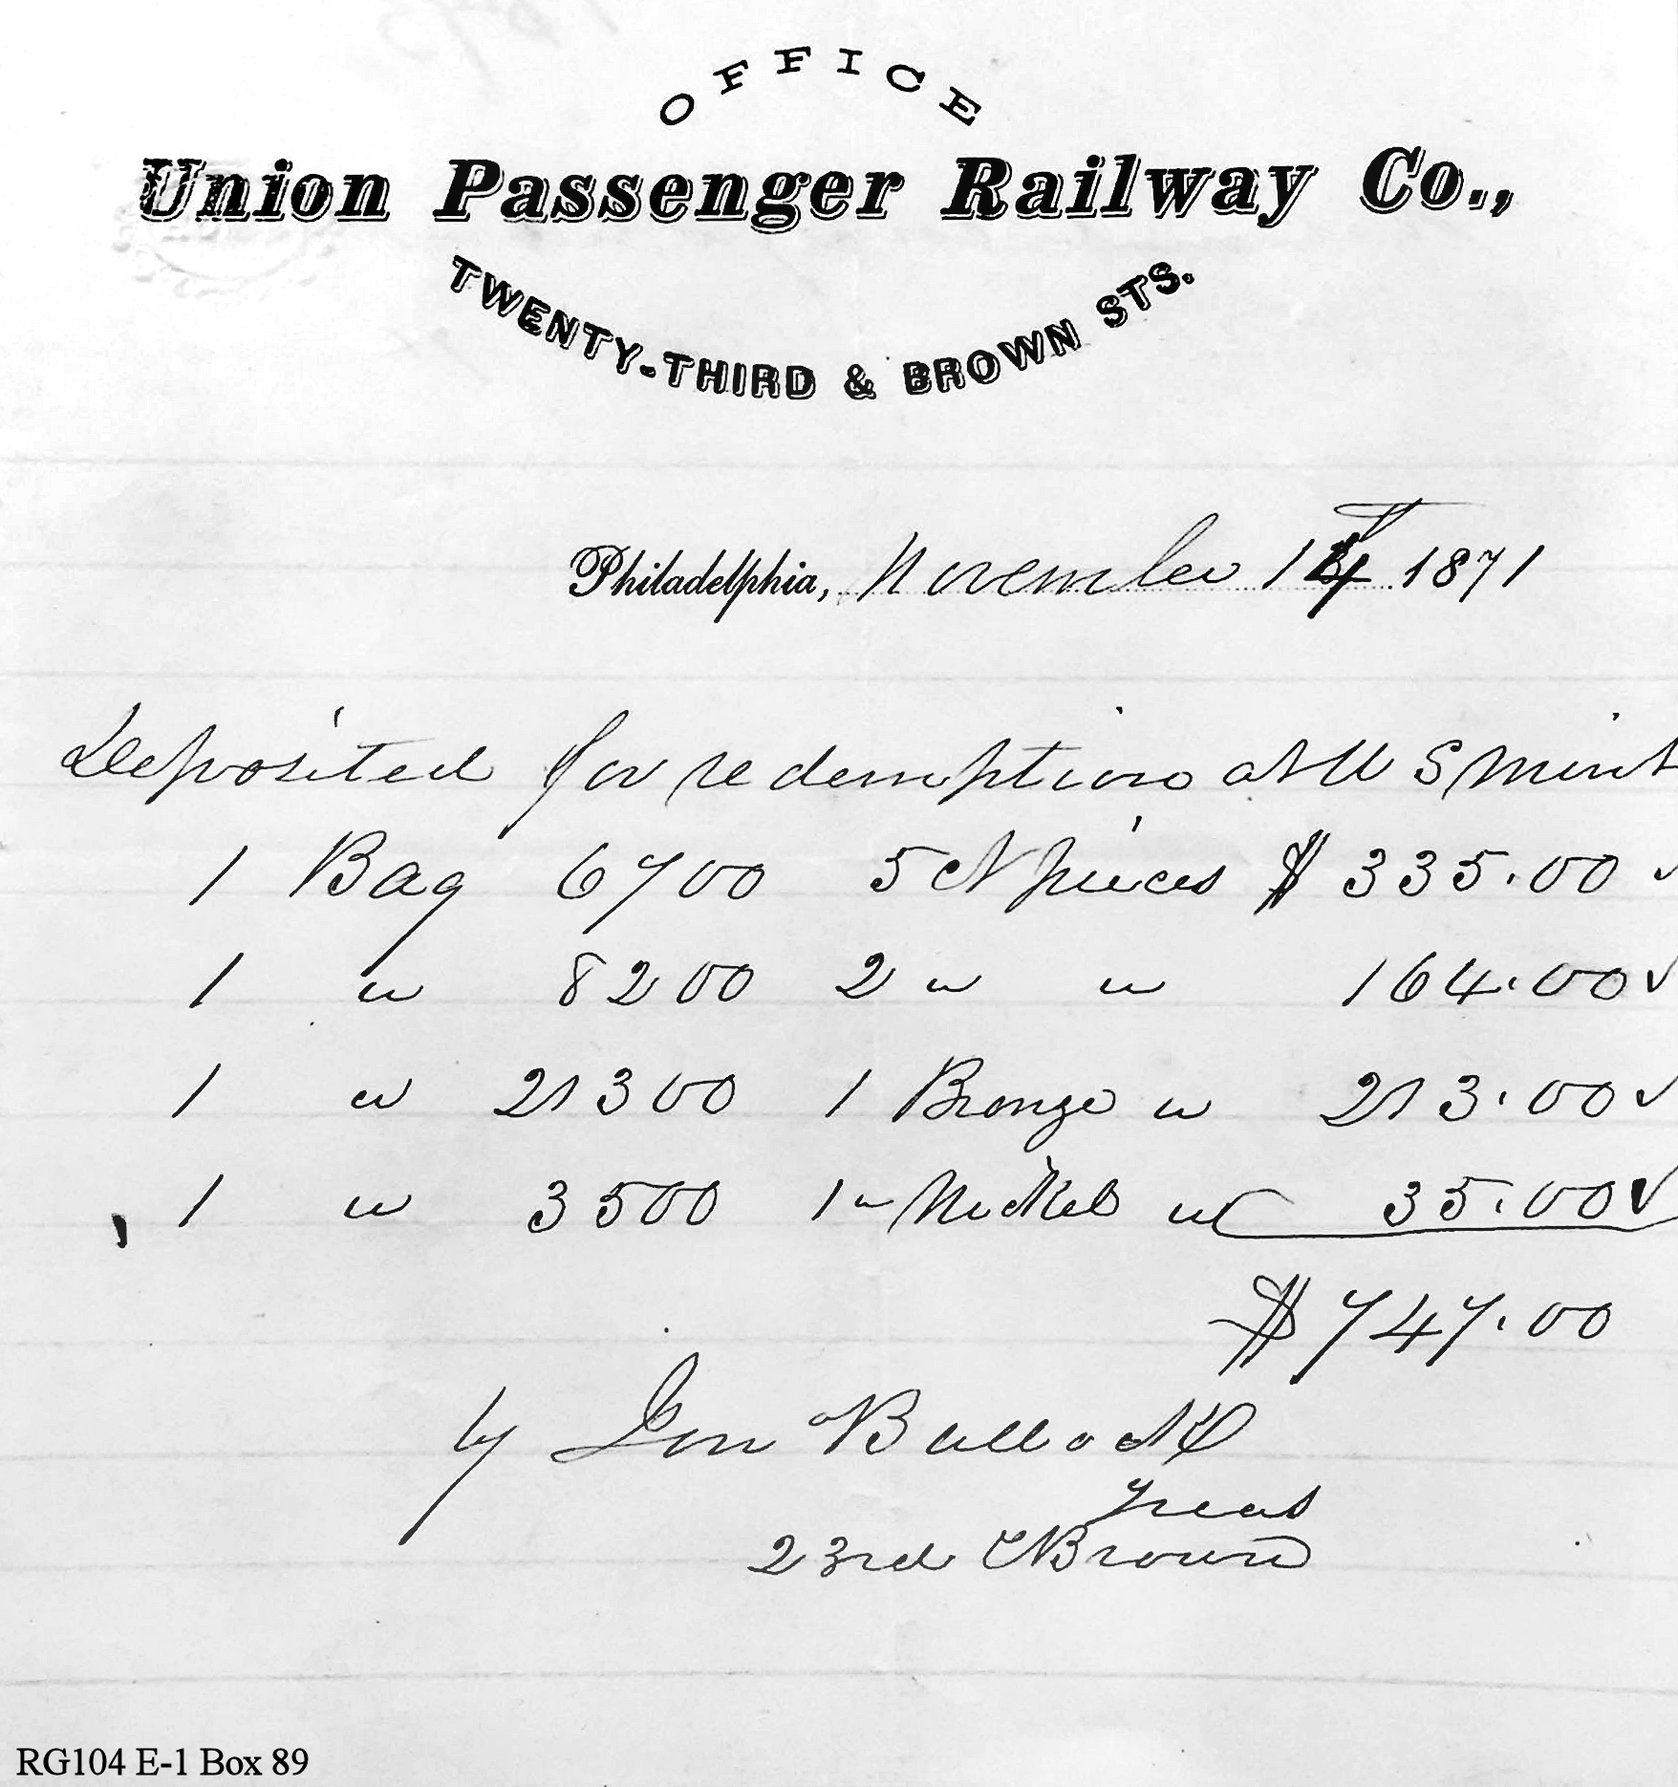 OFFICE
Union Passenger Railway Co.,
TWENTY-THIRD & BROWN STS.
Philadelphia, November 14 1871
Deposited for redemption at U S Mint
1 Bag 6700 5 ct pieces $ 335.00 ✓
1 " 8200 2 " " 164.00 ✓
1 " 21300 1 Bronze " 213.00 ✓
1 " 3500 1 " Nickel " 35.00 ✓
$ 747.00
by Geo Bullock
Treas
23rd & Brown
RG104 E-1 Box 89